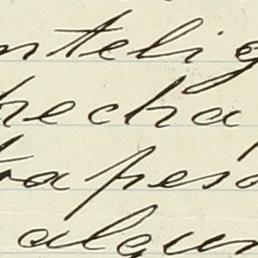 ntelig
hecha
ra peso
algun